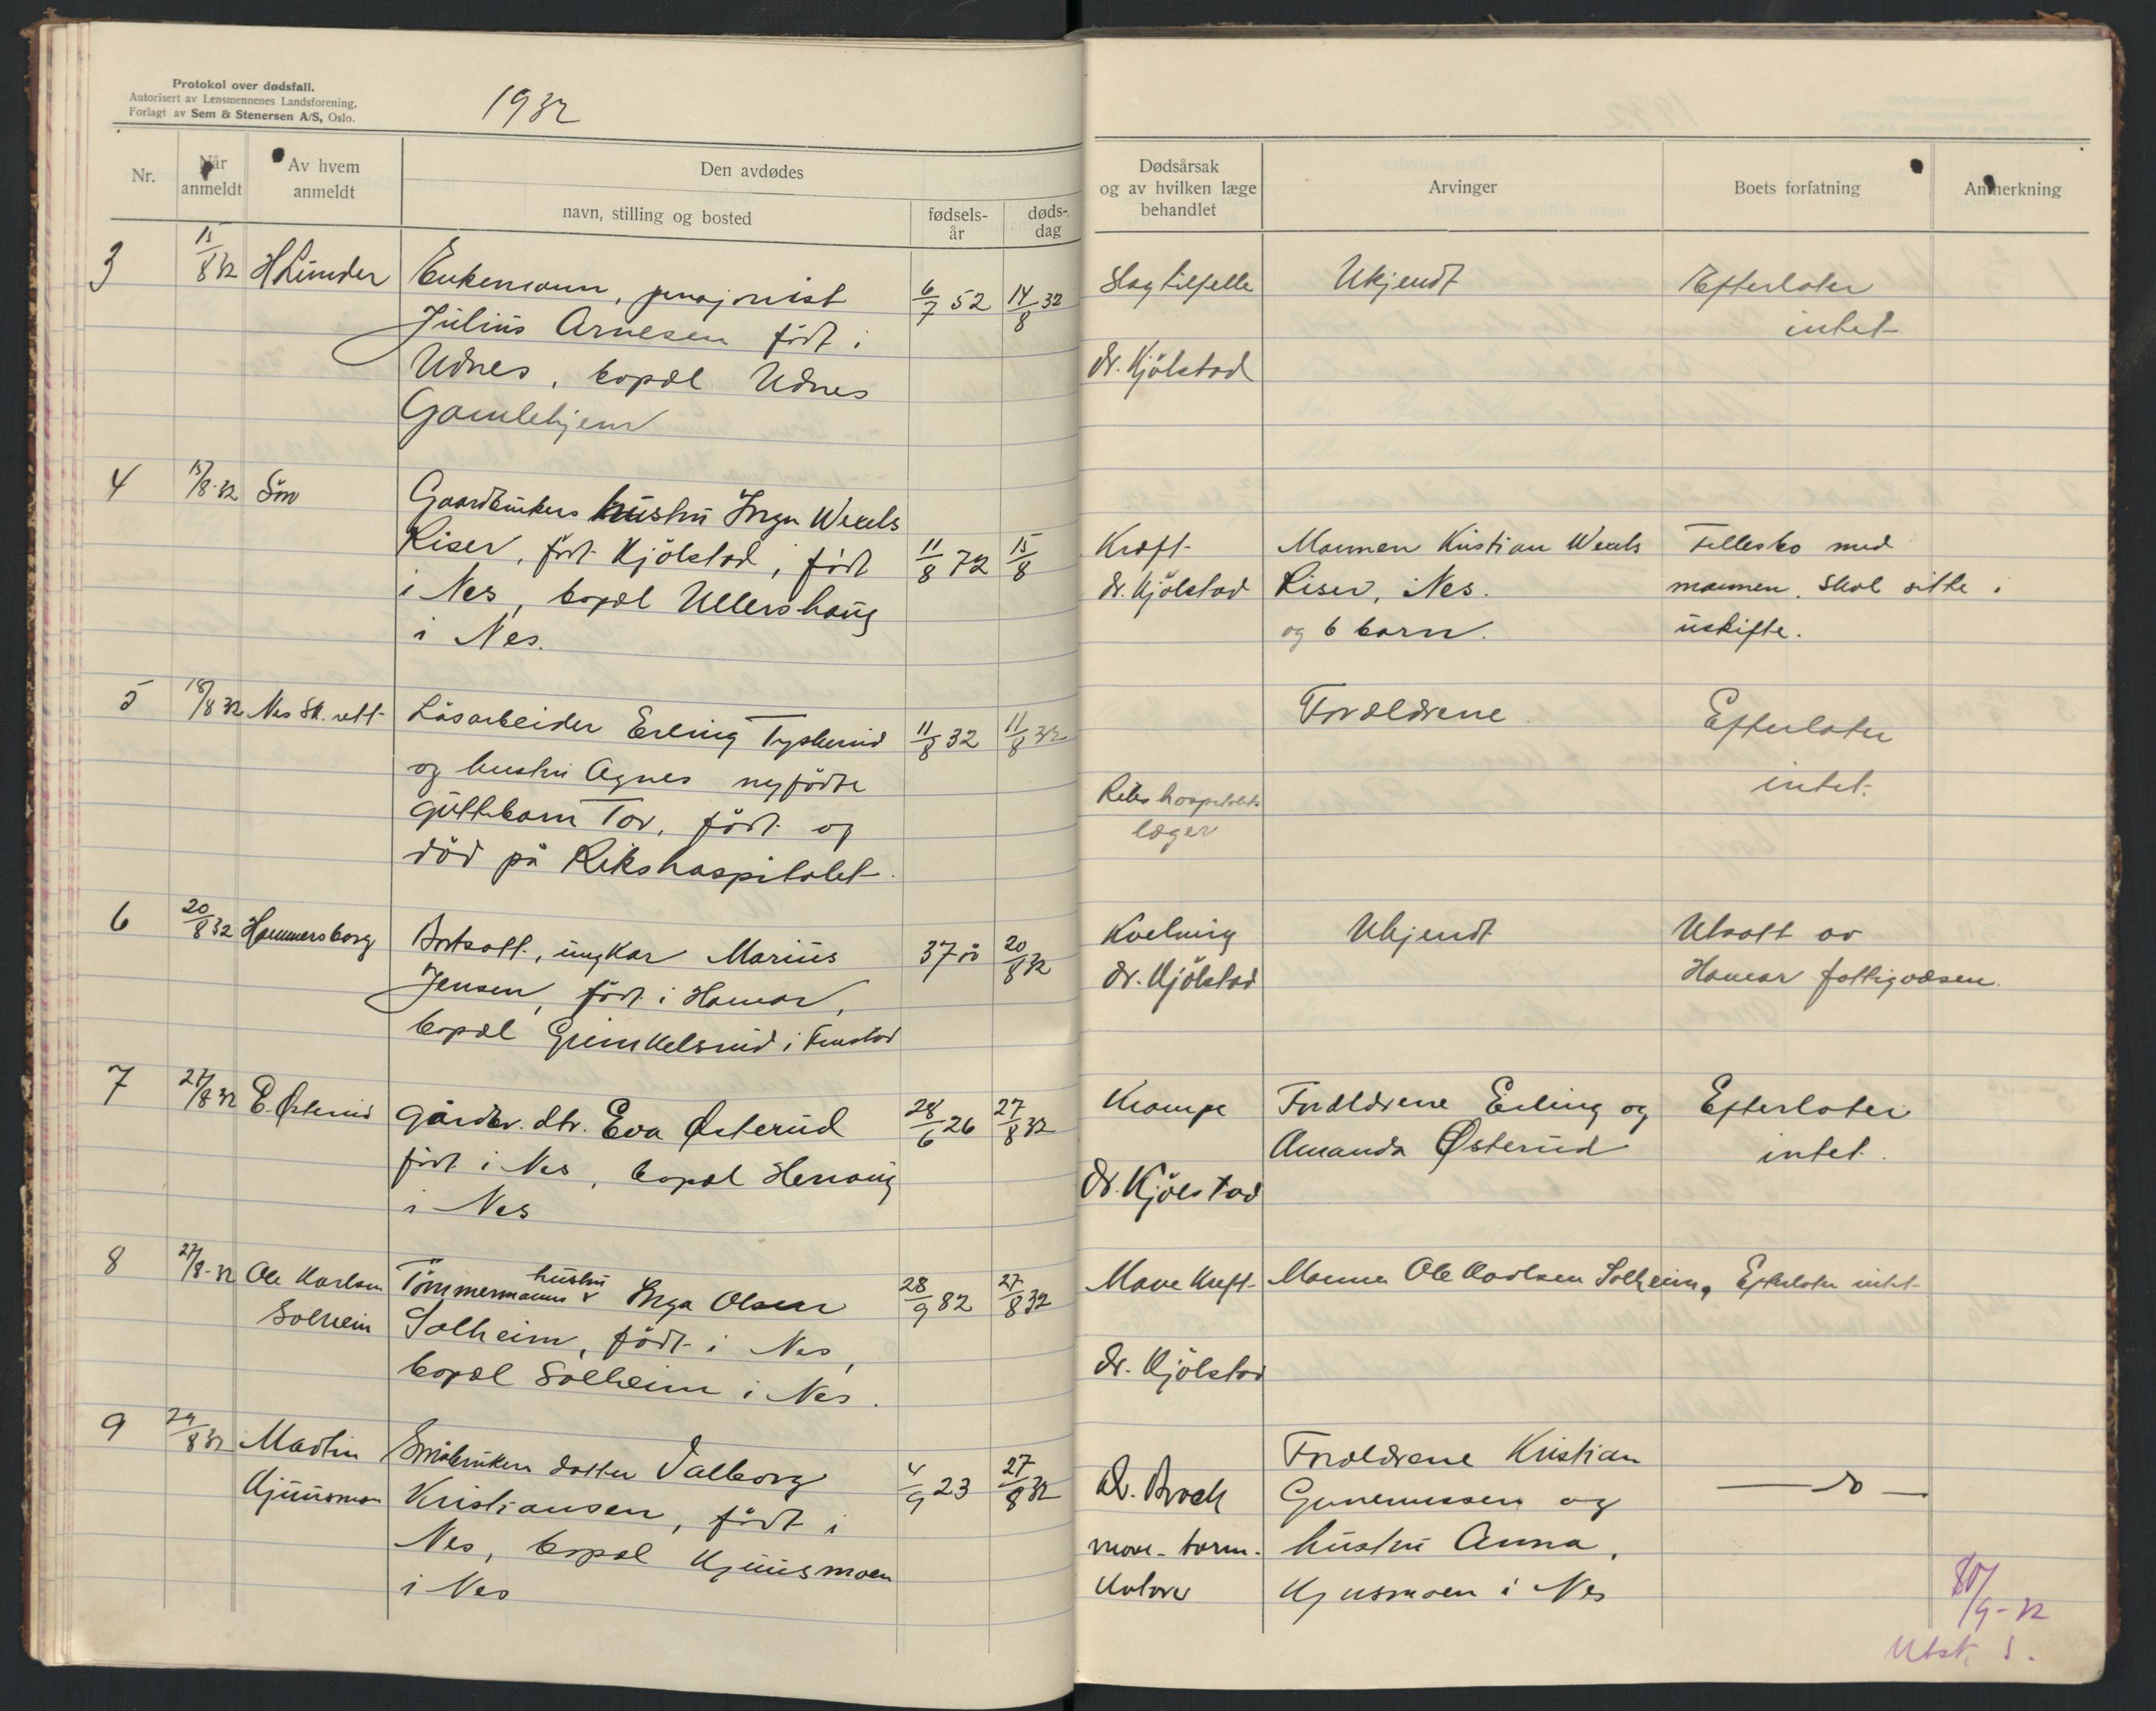 Protokol over dødsfall.
Autorisert av Lensmennenes Landsforening.
Forlagt av Sem & Stenersen A/S, Oslo.
1932
Nr.
Når anmeldt
Av hvem anmeldt
Den avdødes
navn, stilling og bosted
fødsels-år
døds-dag
Dødsårsak og av hvilken læge behandlet
Arvinger
Boets forfatning
Anmerkning
3 15/8 32 H Linder
Enkemann, pensjonist 6/7 52 14/8 32
Julius Arnesen födt i
Udnes, bopæl Udnes
Gamlehjem
Slagtilfelle
dr. Kjölstad
Ukjendt
Efterlater
intet
4 15/8-32 Sön
Gaardbrukers hustru Inga Wexels
Riser, födt Kjölstad, födt 11/8 72 15/8
i Nes, bopæl Ullershaug
i Nes.
Kræft
dr. Kjölstad
Mannen Kristian Wexels
Riser, i Nes.
og 6 barn.
Fellesbo med
mannen. Skal sitte i
uskifte.
5 18/8 32 Nes Sk. rett
Lösarbeider Erling Tyskerud 11/8 32 11/8 32
og hustru Agnes nyfödte
guttebarn Tor, födt og
död på Rikshospitalet.
Rikshospitalets
læger
Forældrene
Efterlater
intet.
6 20/8 32 Hammersborg
Bortsatt, ungkar Marius 37 år 20/8 32
Jensen, födt i Hamar,
bopæl Grimkelsrud i Fenstad
Kvelning
dr. Kjölstad
Ukjendt
Utsatt av
Hamar fattigvæsen.
7 27/8 32 E. Østerud
Gårdbr. dtr. Eva Østerud 28/6 26 27/8 32
födt i Nes, bopæl Herraug
i Nes
Krampe
dr. Kjölstad
Forældrene Erling og
Amanda Østerud
Efterlater
intet.
8 27/8-32 Ole Karlsen
Solheim
Tömmermanns hustru Inga Olsen 28/9 82 27/8 32
Solheim, födt i Nes,
bopæl Solheim i Nes.
Mave Kreft
dr. Kjölstad
Mannen Ole Karlsen Solheim, Efterlater intet
9 29/8 32 Martin
Kjuusmoen
Småbrukers datter Valborg 4/9 23 27/8 32
Kristiansen, födt i
Nes, bopæl Kjuusmoen
i Nes
dr. Broch
mave-tarm-
katarr
Forældrene Kristian
Gunerussen og
hustru Anna,
Kjusmoen i Nes
— do —
/9-32
Utsk. S.